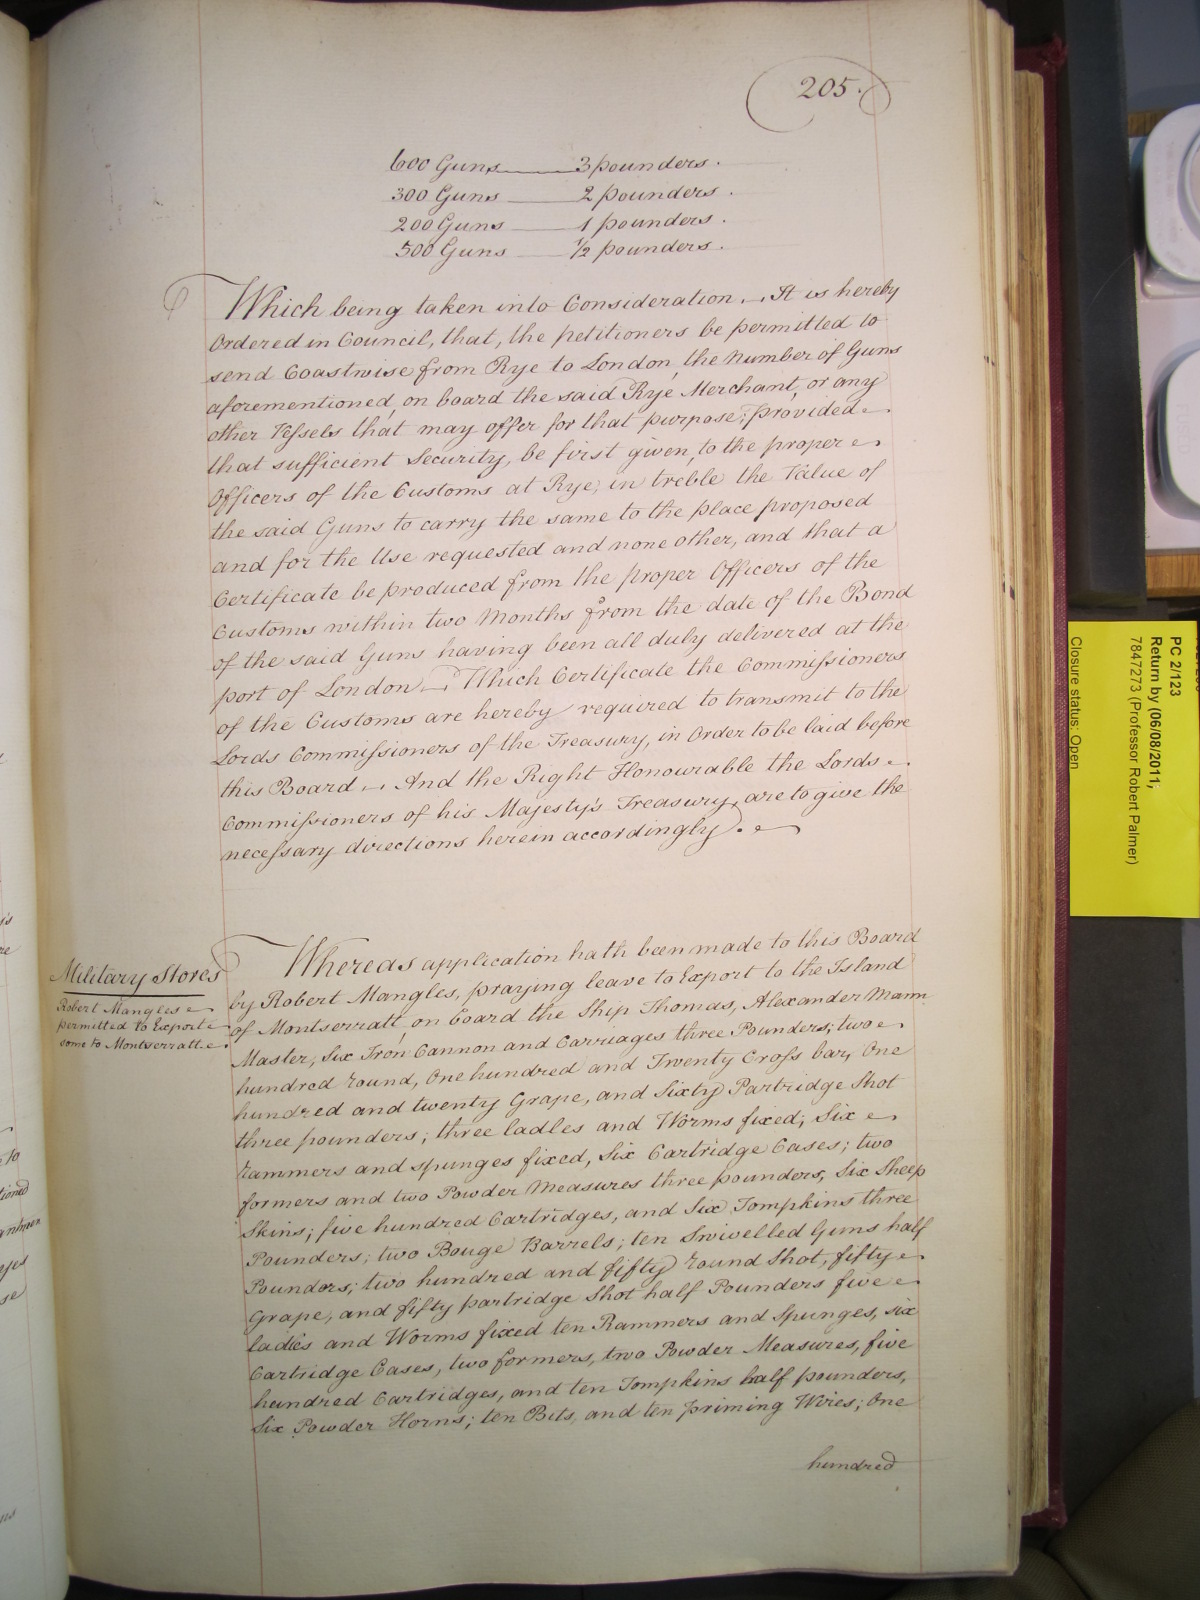 205.
600 Guns ——— 3 pounders.
300 Guns ——— 2 pounders.
200 Guns ——— 1 pounders.
500 Guns ——— 1/2 pounders.
Which being taken into Consideration, It is hereby
Ordered in Council, that, the petitioners be permitted to
send Coastwise from Rye to London, the Number of Guns
aforementioned, on board the said Rye Merchant, or any
other Vessels that may offer for that purpose; provided
that sufficient Security, be first given, to the proper
Officers of the Customs at Rye, in treble the Value of
the said Guns to carry the same to the place proposed
and for the Use requested and none other, and that a
Certificate be produced from the proper Officers of the
Customs within two Months from the date of the Bond
of the said Guns having been all duly delivered at the
port of London — Which Certificate the Commissioners
of the Customs are hereby required to transmit to the
Lords Commissioners of the Treasury, in Order to be laid before
this Board — And the Right Honourable the Lords
Commissioners of his Majesty's Treasury, are to give the
necessary directions herein accordingly.
Military Stores
Robert Mangles
permitted to Export
some to Montserratt.
Whereas application hath been made to this Board
by Robert Mangles, praying leave to Export to the Island
of Montserratt, on board the Ship Thomas, Alexander Mann
Master, Six Iron Cannon and Carriages three Pounders; two
hundred round, One hundred and Twenty Cross bar, One
hundred and twenty Grape, and Sixty Partridge Shot
three pounders; three ladles and Worms fixed; Six
rammers and spunges fixed, Six Cartridge Cases; two
formers and two Powder Measures three pounders, Six Sheep
Skins; five hundred Cartridges, and Six Tompkins three
Pounders; two Bouge Barrels; ten Swivelled Guns half
Pounders; two hundred and fifty round Shot, fifty
Grape, and fifty partridge Shot half Pounders five
ladles and Worms fixed ten Rammers and Spunges, six
Cartridge Cases, two formers, two Powder Measures, five
hundred Cartridges, and ten Tompkins half pounders,
Six Powder Horns; ten Bits, and ten priming Wires; One
hundred
PC 2/123
Return by (06/08/2011;
7847273 (Professor Robert Palmer)
Closure status: Open